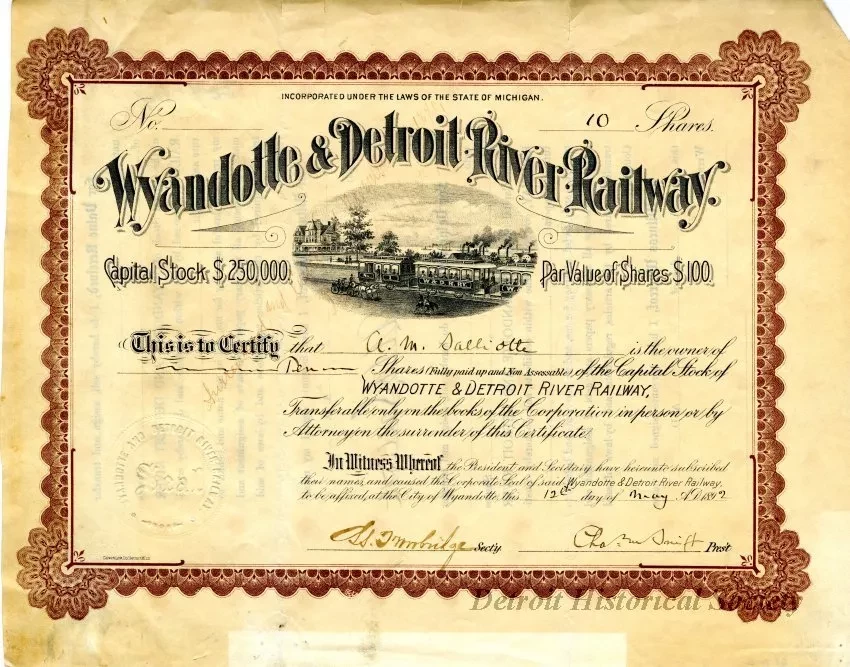 INCORPORATED UNDER THE LAWS OF THE STATE OF MICHIGAN.
No. 10 Shares.
Wyandotte & Detroit River Railway.
Capital Stock $250,000. Par Value of Shares $100.
This is to Certify that A. M. Salliotte is the owner of
Ten Shares (Fully paid up and Non Assessable) of the Capital Stock of
WYANDOTTE & DETROIT RIVER RAILWAY,
Transferable only on the books of the Corporation in person or by
Attorney on the surrender of this Certificate.
In Witness Whereof the President and Secretary have hereunto subscribed
their names and caused the Corporate Seal of said Wyandotte & Detroit River Railway,
to be affixed, at the City of Wyandotte, this 12th day of May A.D. 1892
Secty. Pres't
Detroit Historical Society